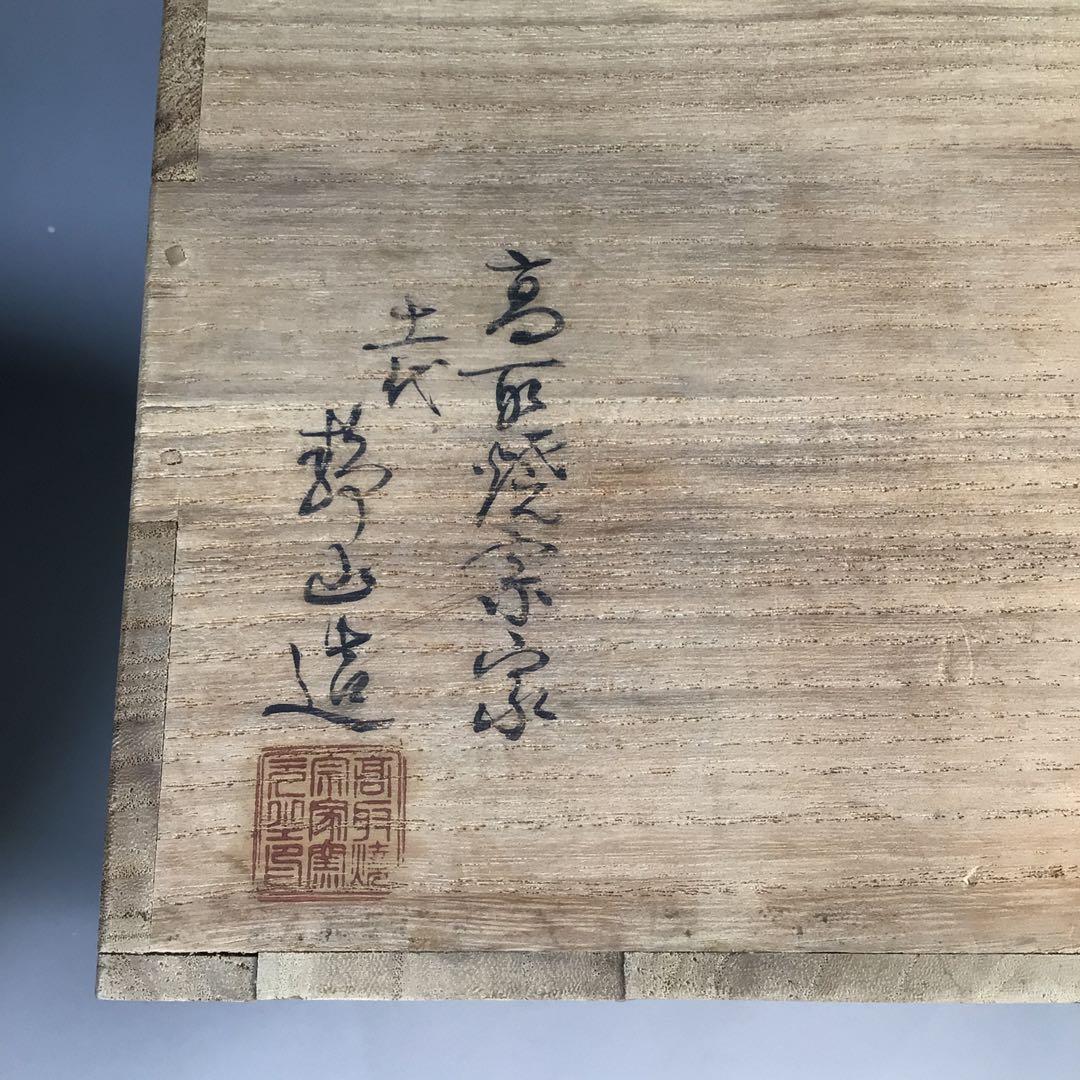 高取焼宗家
十一代
静山造
高取焼
宗家窯
元之印